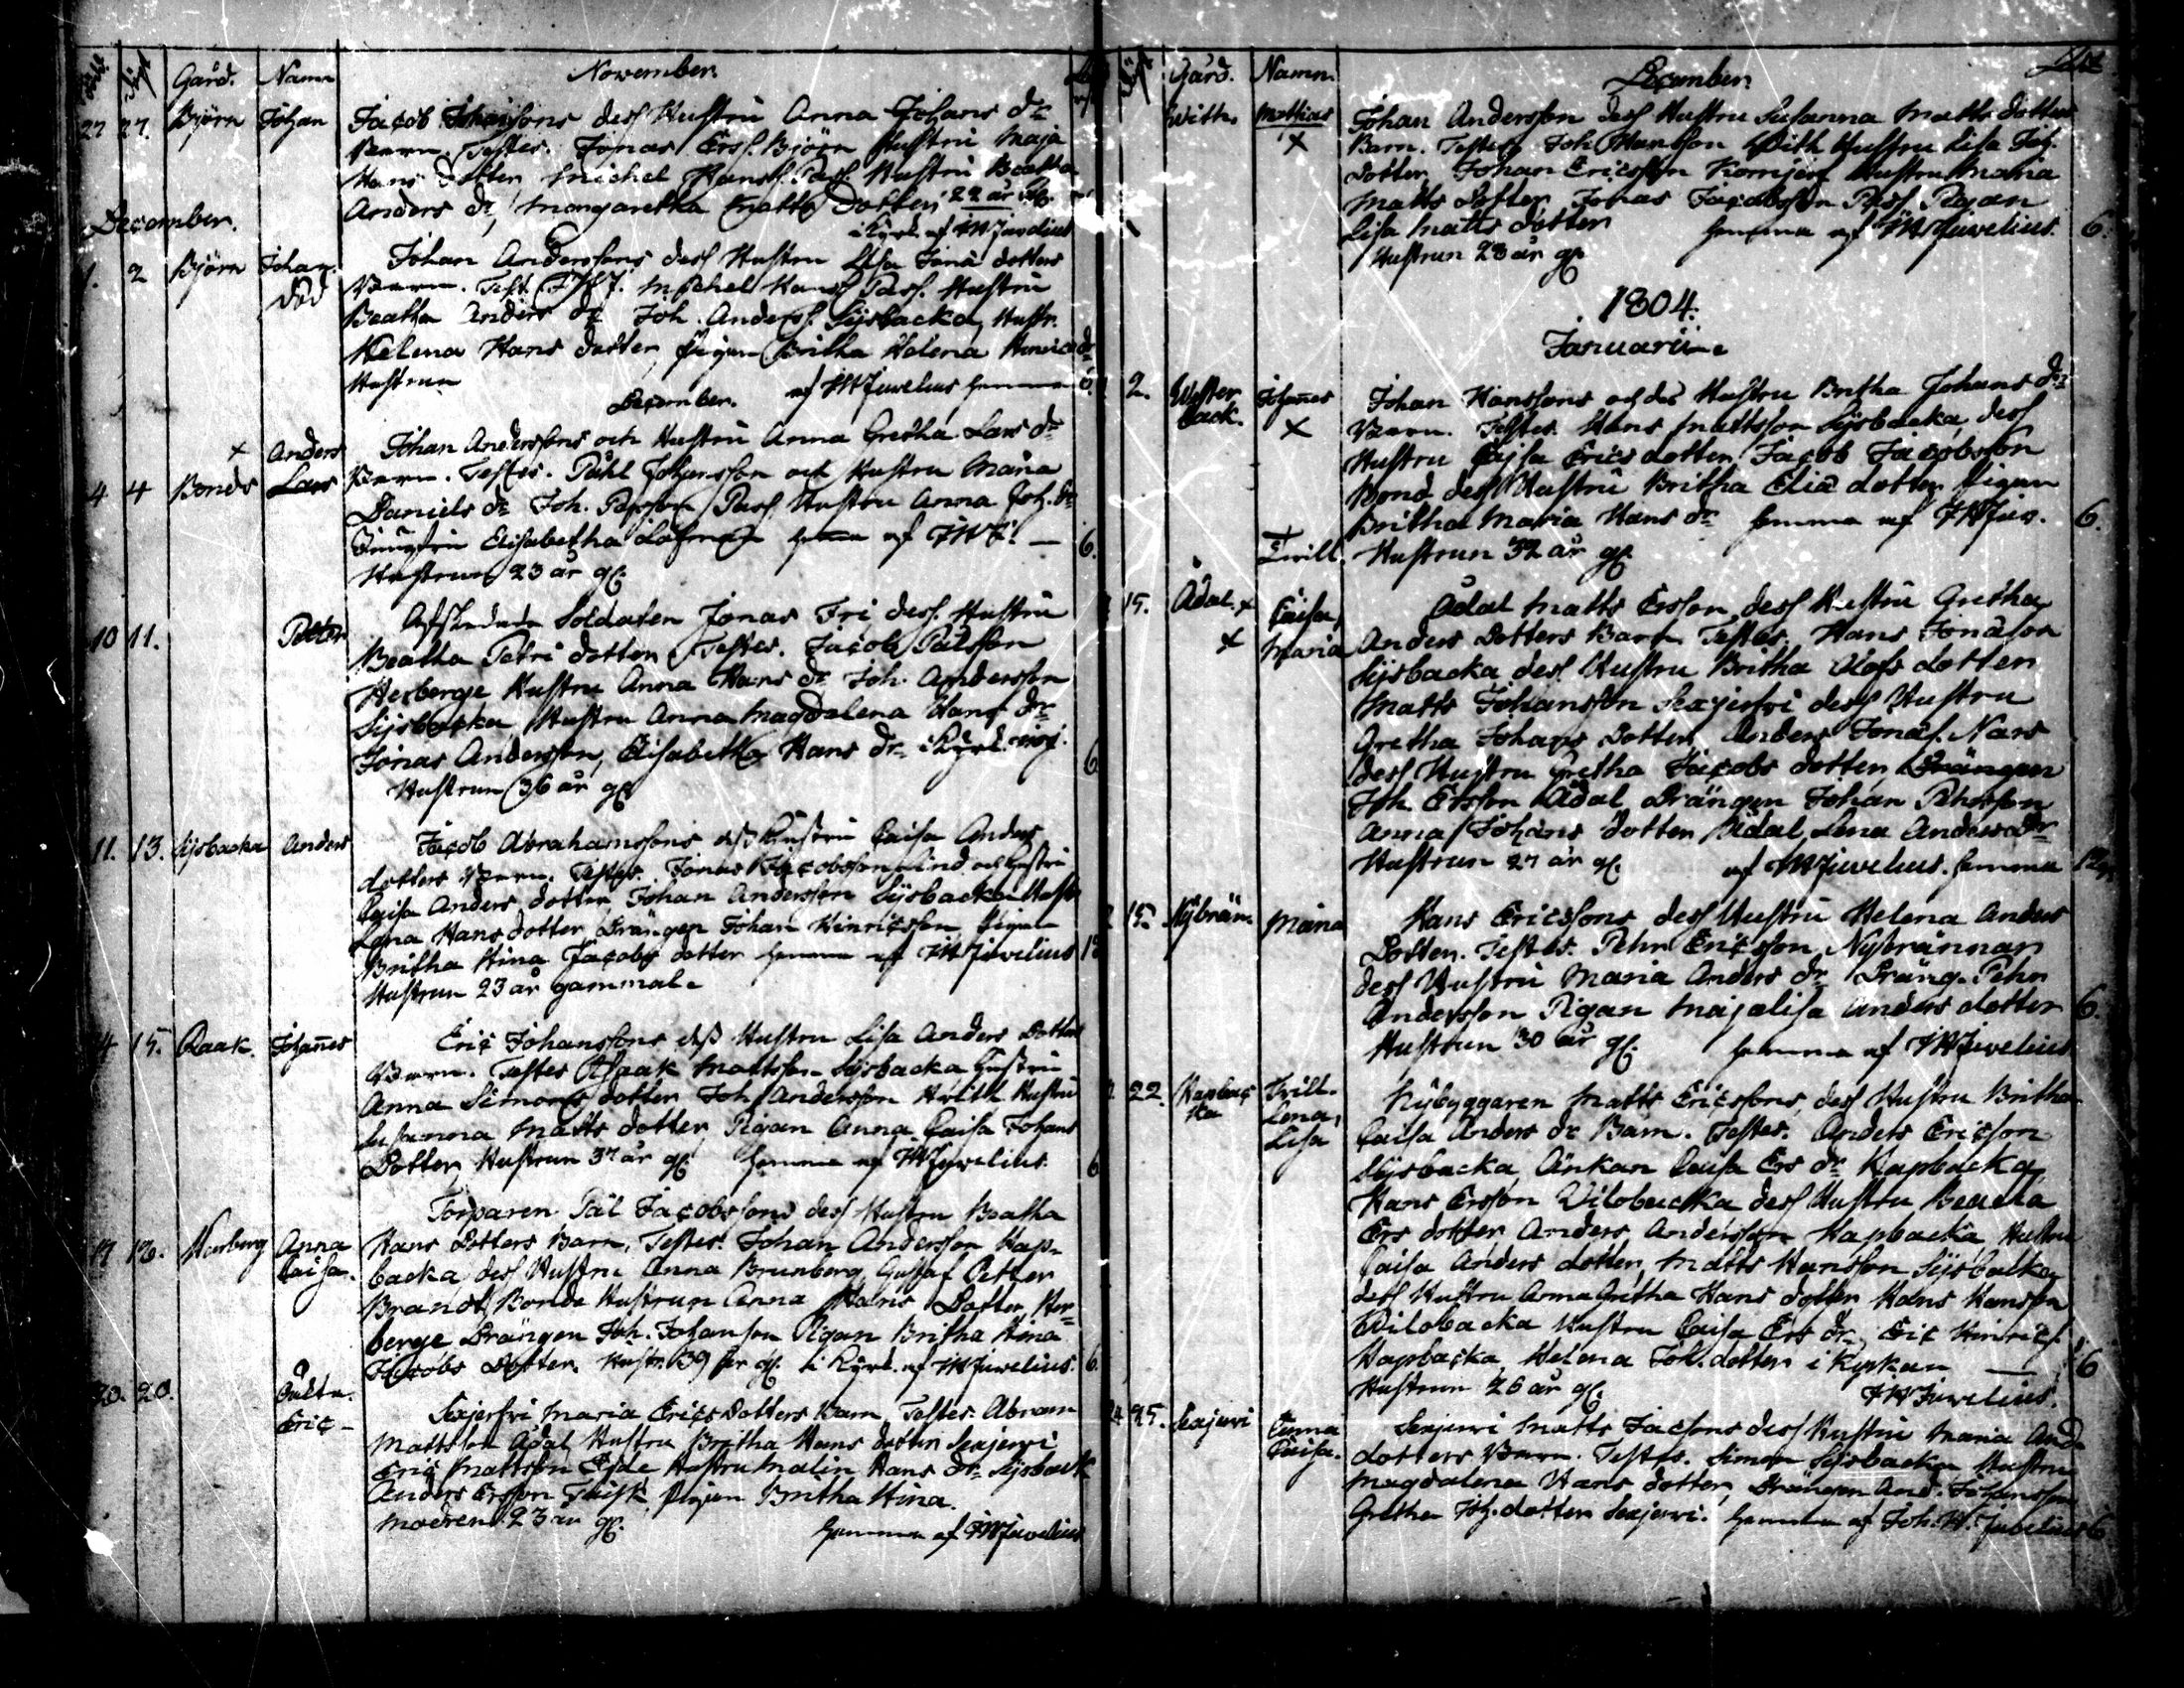 Gård. Namn November.
27 27. Björn Johan Jacob Johansons dess Hustru Anna Johans dr
Barn. Testes. Jonas Erss. Björn Hustru Maja
Hans dotter, Michel Hanss. Pass. Hustru Beatha
Anders dr, Margaretha Matts dotter 22 år
i Kyrk. af JWJuvelius
December.
1. 2 Björn Johan. Johan Anderssons dess Hustru Lisa Jona dotters
död Barn. Test. Michel Hanss Pass. Hustru
Beatha Anders dr Joh. Anderss. Sijsbacka, Hustr.
Helena Hans dotter, Pigan Britha Helena
Hustrun af JWJuvelius hemma 6
December.
x Anders Johan Anderssons och Hustru Anna Gretha Lars dr
4 4 Bonds Lars Barn. Testes. Påhl Johansson och Hustru Maria
Daniels dr Joh. Pass, Hustru Anna Joh. dr
Elisabetha hemma af JWJ. — 6.
Hustrun 23 år gl.
10 11. Petter Afskedade Soldaten Jonas Fri dess Hustru
Beatha Petri dotter Testes. Jacob Pålsson
Herberge Hustru Anna Hans dr Joh. Andersson
Sijsbacka, Hustru Anna Magdalena Hans dr
Jonas Andersson, Elisabetha Hans dr i Kyrk.
Hustrun 36 år gl. 6
11. 13. Sijsbacka Anders Jacob Abrahamssons och Hustru Caisa Anders
dotters Barn. Testes. Jonas Jacobsson Lind och Hustru
Caisa Anders dotter, Johan Andersson Sijsbacka Hustr
Lena Hans dotter, Drängen Johan Hinricsson, Pigan
Britha Stina Jacobs dotter hemma af JWJuvelius 12
Hustrun 23 år gammal.
14 15. Raak. Johannes Eric Johanssons dess Hustru Lisa Anders Dotters
Barn. Testes Isaak Mattsson Sijsbacka Hustru
Anna Simons dotter Joh. Andersson With Hustru
Susanna Matts dotter, Pigan Anna Caisa Johans
Dotter, Hustrun 37 år gl. hemma af JWJuvelius. 6
Torparen Pål Jacobssons dess Hustru Beatha
17 18. Herberg Anna Hans Dotters Barn, Testes. Johan Andersson Kap-
Caisa. backa dess Hustru Anna Brunberg, Gustaf Petter
Brandt, Bonde Hustrun Anna Hans Dotter, Her-
berge Drängen Joh. Johansson Pigan Britha Stina
Jacobs Dotter. Hustr. 39 år gl. i Kyrk. af JWJuvelius. 6
20. 20. Oäkta. Sexjerfri Maria Erics Dotters Barn, Testes. Abram
Eric – Mattsson Ådal Hustru Britha Hans dotter Sexjervi
Eric Mattsson Hustru Malin Hans dr Sijsback
Anders Ersson Pigan Britha Stina.
Modren 23 år gl. hemma af JWJuvelius
Gård. Namn. December
With. Mathias Johan Andersson dess Hustru Susanna Matts dotters
x Barn. Testes, Joh Hansson With Hustru Lisa Joh.
dotter, Johan Ericsson Hustru Maria
Matts Dotter, Jonas Jacobsson Pass. Pigan
Lisa Matts dotter hemma af JWJuvelius. 6.
Hustrun 23 år gl.
1804.
Januarii.
2. Wester Johannes Johan Hanssons och des Hustru Britha Johans dr
back. x Barn. Testes. Hans Mattsson Sijsbacka, dess
Hustru Caisa Erics dotter, Jacob Jacobsson
Bond dess Hustru Britha Elia dotter, Pigan
Britha Maria Hans dr hemma af JWJuv. 6.
Tvill. Hustrun 32 år gl.
15. Ådal. x Caisa, Ådal Matts Ersson, dess Hustru Gretha
x Maria Anders Dotters Barn Testes, Hans Jonasson
Sijsbacka dess Hustru Britha Olofs dotter
Matts Johansson Sexjerfvi dess Hustru
Gretha Johans Dotter, Anders Jonass. Nars
dess Hustru Gretha Jacobs dotter, Drängen
Joh. Ersson Ådal, Drängen Johan Pehrsson
Anna Johans dotter Ådal, Lena Anders dr
Hustrun 27 år gl. af JWJuvelius. hemma 12.
15. Nybrän. Maria Hans Ericssons dess Hustru Helena Anders
Dotter. Testes. Pehr Ericsson, Nybrännar
dess Hustru Maria Anders dr Dräng. Pehr
Andersson Pigan Majalisa Anders dotter 6.
Hustrun 30 år gl. hemma af JWJuvelius
22. Kapbac Tvill. Nybyggaren Matts Ericssons, dess Hustru Britha
ka Lena, Caisa Anders dr Barn. Testes. Anders Ericsson
Lisa Sijsbacka, Änkan Caisa Ers dr Kapbacka,
Hans Ersson Wilobacka dess Hustru Beatha
Ers dotter, Anders Andersson Kapbacka Hustru
Caisa Anders dotter, Matts Hansson Sijsbacka
dess Hustru Anna Gretha Hans dotter Hans Hansson
Wilobacka Hustru Caisa Ers dr, Eric Hinricss
Kapbacka, Helena Joh. dotter i Kyrkan — 6
Hustrun 26 år gl. JWJuvelius.
25. Sexjervi Anna Sexjervi Matts Jacsons dess Hustru Maria And.
Caisa. dotters Barn. Testes. Simon Sijsbacka Hustru
Magdalena Hans dotter, Drängen And. Johansson
Gretha Joh. dotter Sexjervi. hemma af Joh. W. Juvelius 6